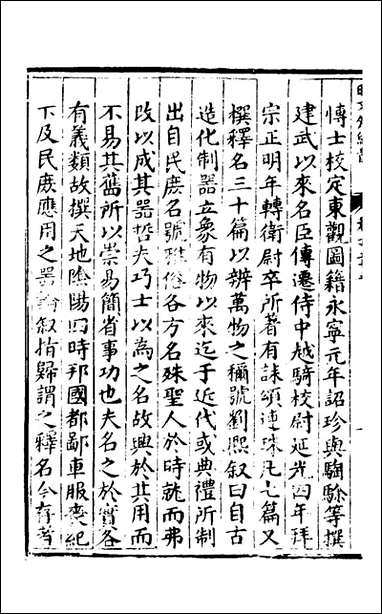 博士校定東觀圖籍永寧元年詔珍與騊駼等撰
建武以來名臣傳遷侍中越騎校尉延光四年拜
宗正明年轉衛尉卒所著有誄頌連珠凡七篇又
撰釋名三十篇以辨萬物之稱號劉熙叙曰自古
造化制器立象有物以來迄于近代或典禮所制
出自民庶名號雅俗各方名殊聖人於時就而弗
改以成其器哲夫巧士以為之名故興於其用而
不易其舊所以崇易簡省事功也夫名之於實各
有義類故撰天地陰陽四時邦國都鄙車服喪紀
下及民庶應用之器論叙指歸謂之釋名今存者